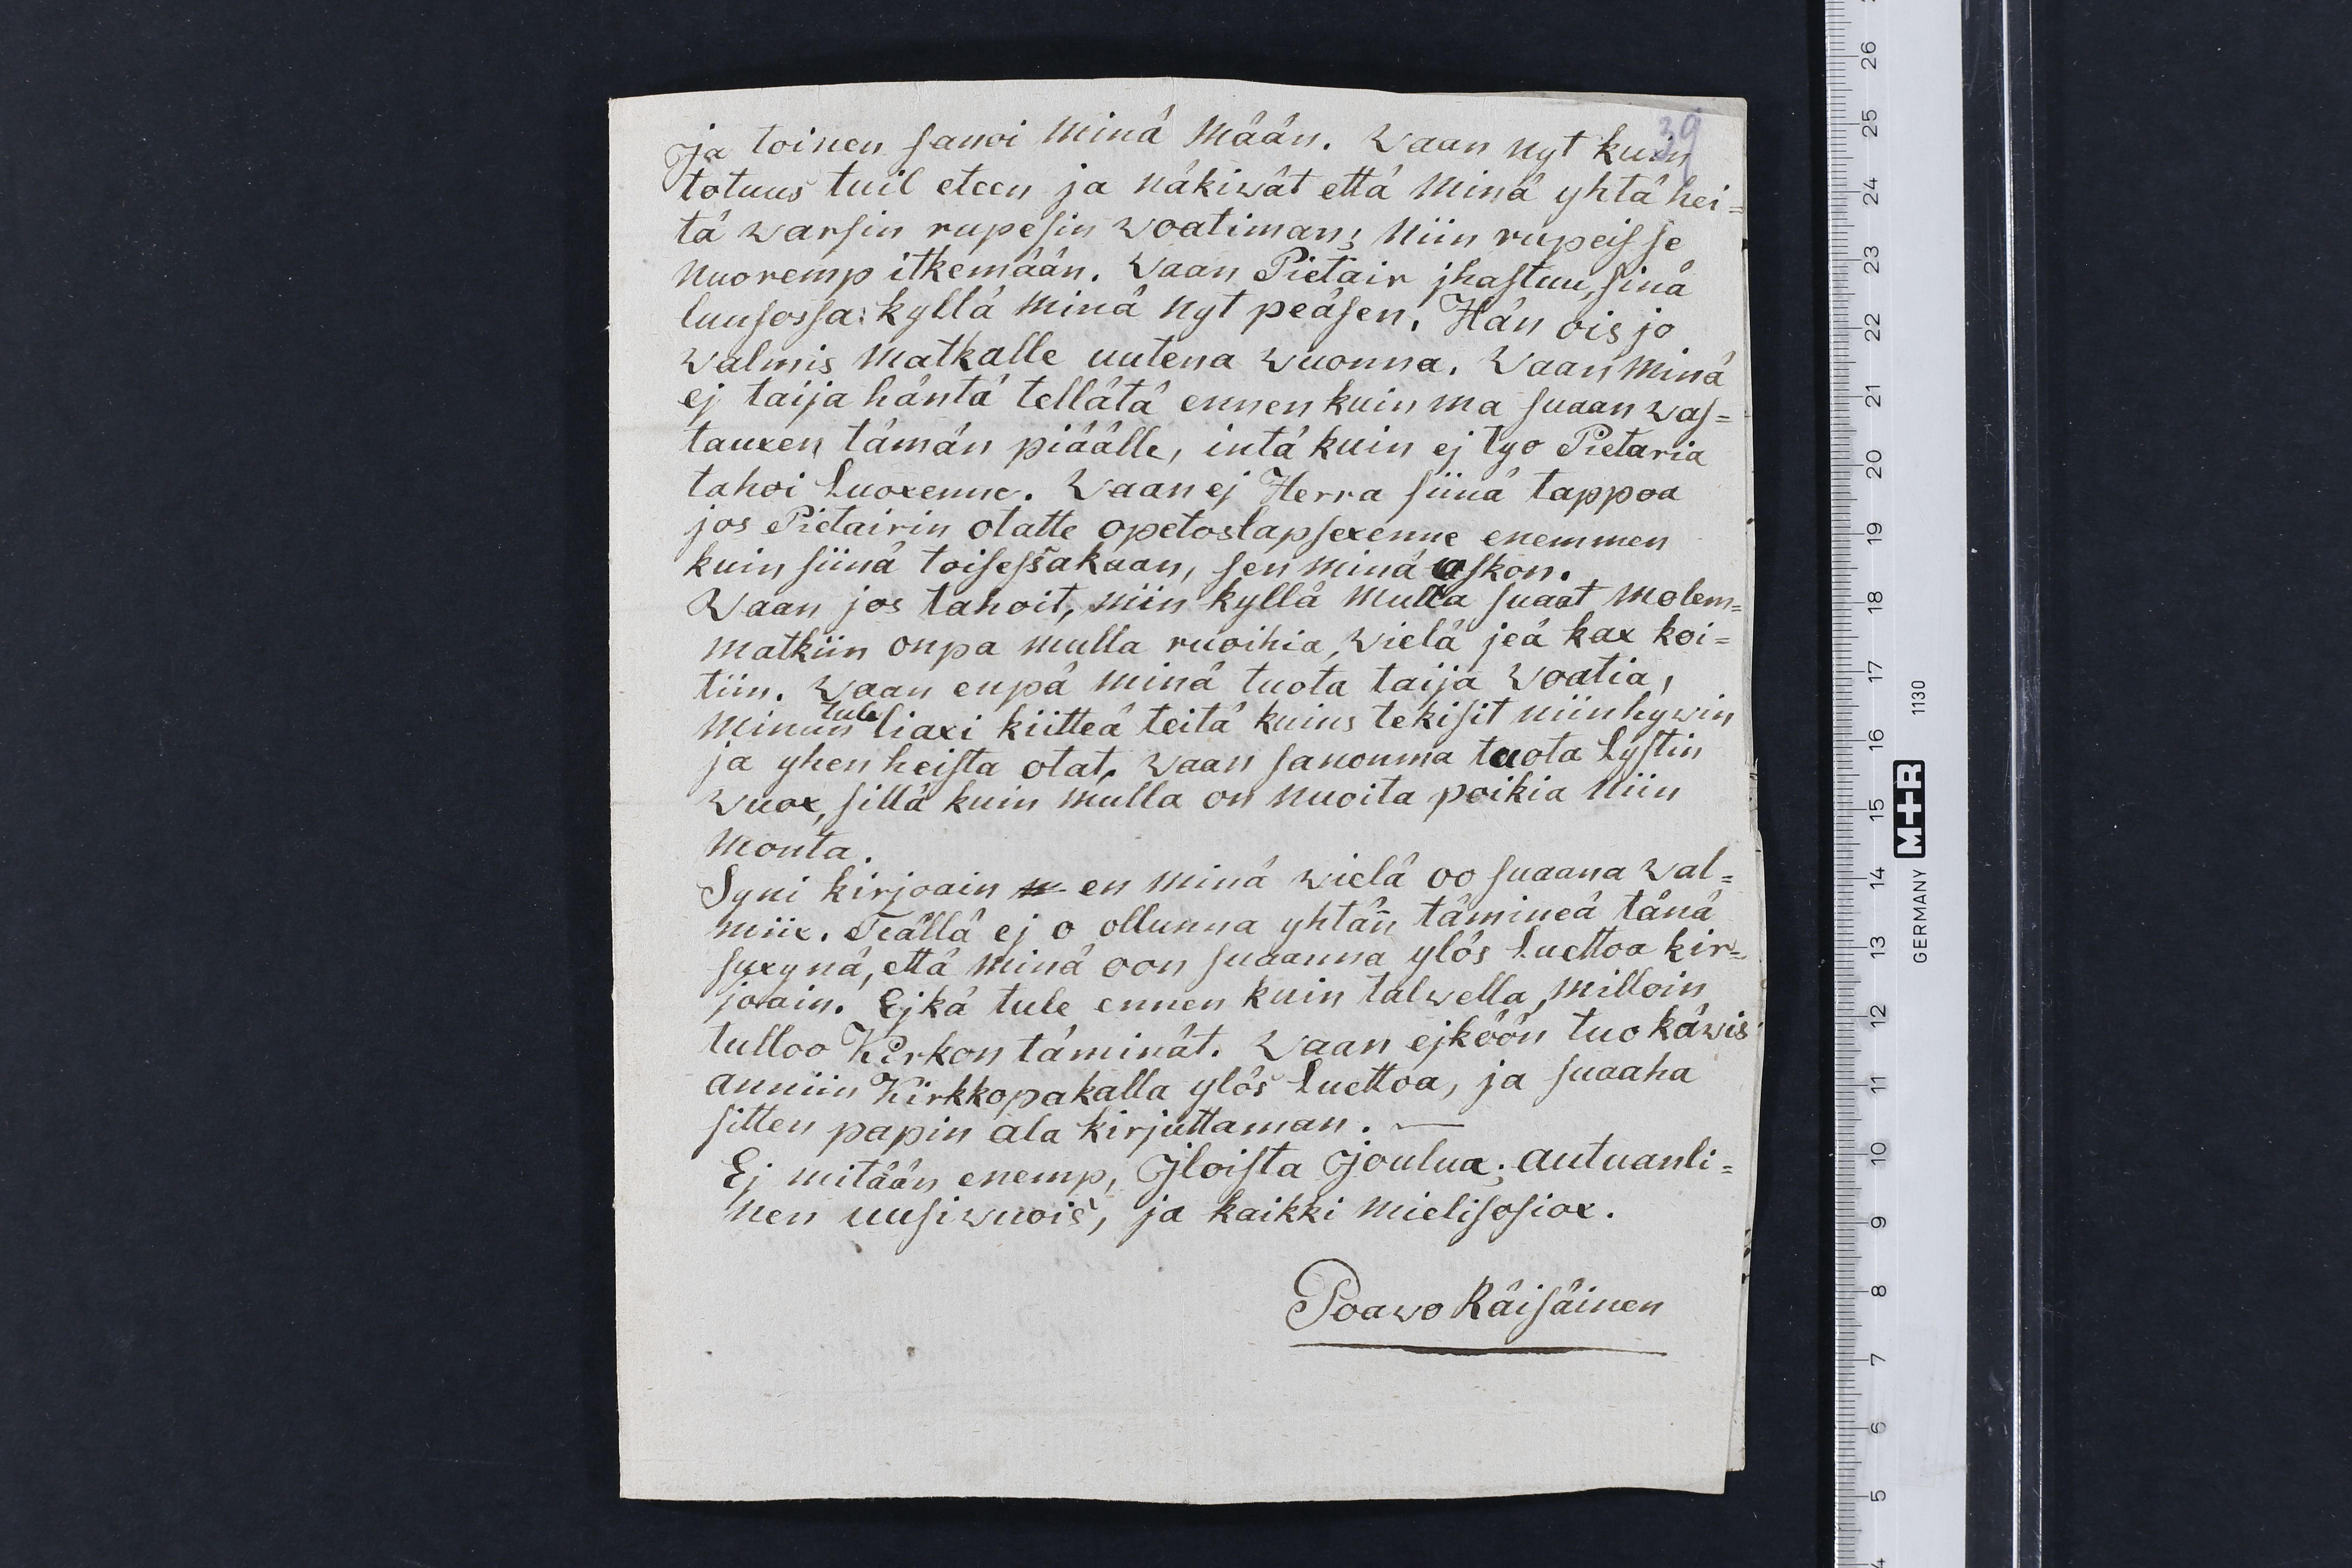 39
ja toinen sanoi minä mään. Waan nyt kuin
totuus tuil eteen ja näkiwät että minä yhtä hei=
tä warsin rupesin woatiman; niin rupeis se
nuoremp itkemään. Waan Pietäir jhastuu, sinä
luusossa: kyllä minä nyt peäsen. Hän ois jo
walmis matkalle uutena wuonna. Waan minä
ej taija häntä tellätä ennen kuin ma suaan was=
tauxen tämän piäälle, intä kuin ej työ Pietaria
tahoi luoxenne. Waan ej Herra siinä tappoa
jos Pietairin otatte opetoslapsexenne enemmen
kuin siinä toisessakaan, sen minä oskon.
Waan jos tahoit, niin kyllä multa suaat molem=
matkiin onpa mulla ruoihia, wielä jeä kax koi=
tiin. Waan enpä minä tuota taija woatia,
minun tule liaxi kiitteä teitä kuins tekisit niin hywin
ja yhen heistä otat, waan sanonma tuota lystin
wuox, sillä kuin mulla on nuoita poikia niin
monta.
Syni kirjoain en minä wielä oo suaana wal=
miix. Teällä ej o ollunna yhtän̄ tämineä tänä
syxynä, että minä oon suaanna ylös luettoa kir=
joain. Ejkä tule ennen kuin talwella, milloin
tulloo Kirkon täminät. Waan ejköön tuo käwis
anniin Kirkkopakalla ylös luettoa, ja suaaha
sitten papin ala kirjuttaman. —
Ej mitään enemp, Jloista Joulua; autuanli=
nen uusiwuois, ja kaikki mielisosiox.
Poawo Räisäinen
GERMANY M+R 1130
26
25
24
23
22
21
20
19
18
17
16
15
14
13
12
11
10
9
8
7
6
5
4